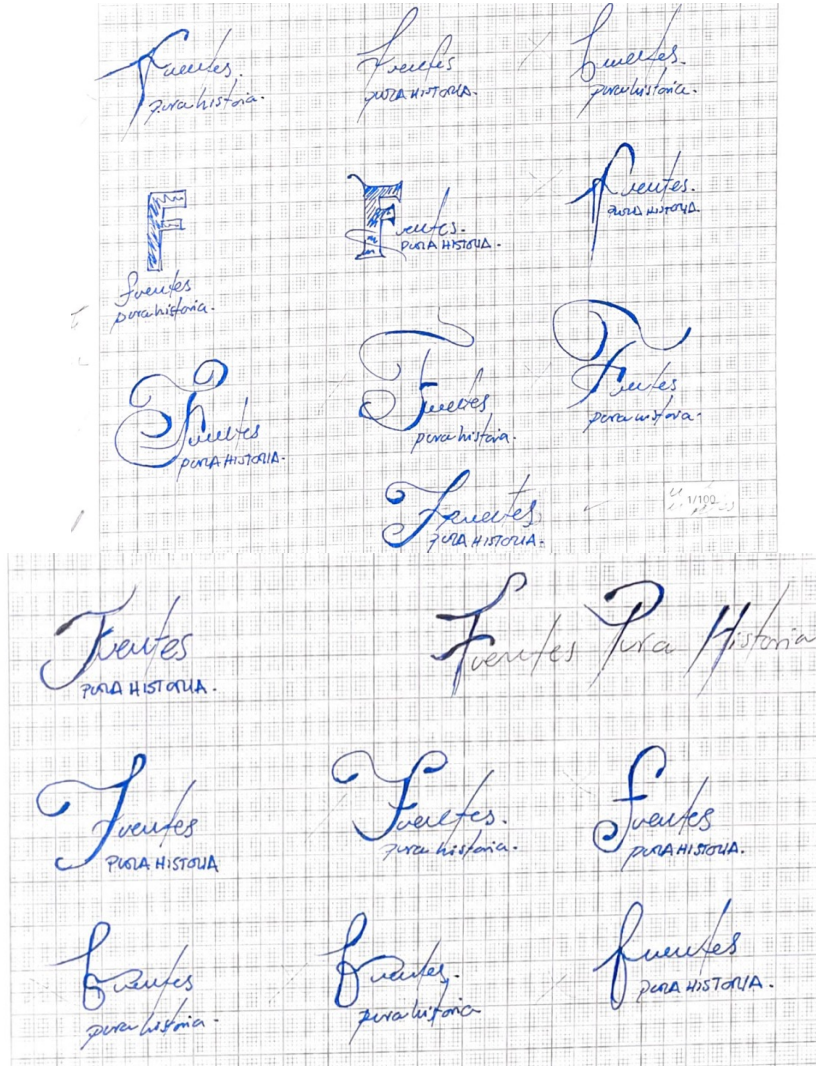 Fuentes.
pura historia.
Fuentes
PURA HISTORIA.
Fuentes.
pura historia.
F
Fuentes
pura historia.
Fuentes.
PURA HISTORIA.
Fuentes.
PURA HISTORIA.
Fuentes
PURA HISTORIA.
Fuentes
pura historia.
Fuentes
pura historia.
Fuentes.
PURA HISTORIA.
1/100
Fuentes
PURA HISTORIA.
Fuentes Pura Historia
Fuentes
PURA HISTORIA
Fuentes.
pura historia.
fuentes
PURA HISTORIA.
fuentes
pura historia.
fuentes.
pura historia
fuentes
PURA HISTORIA.